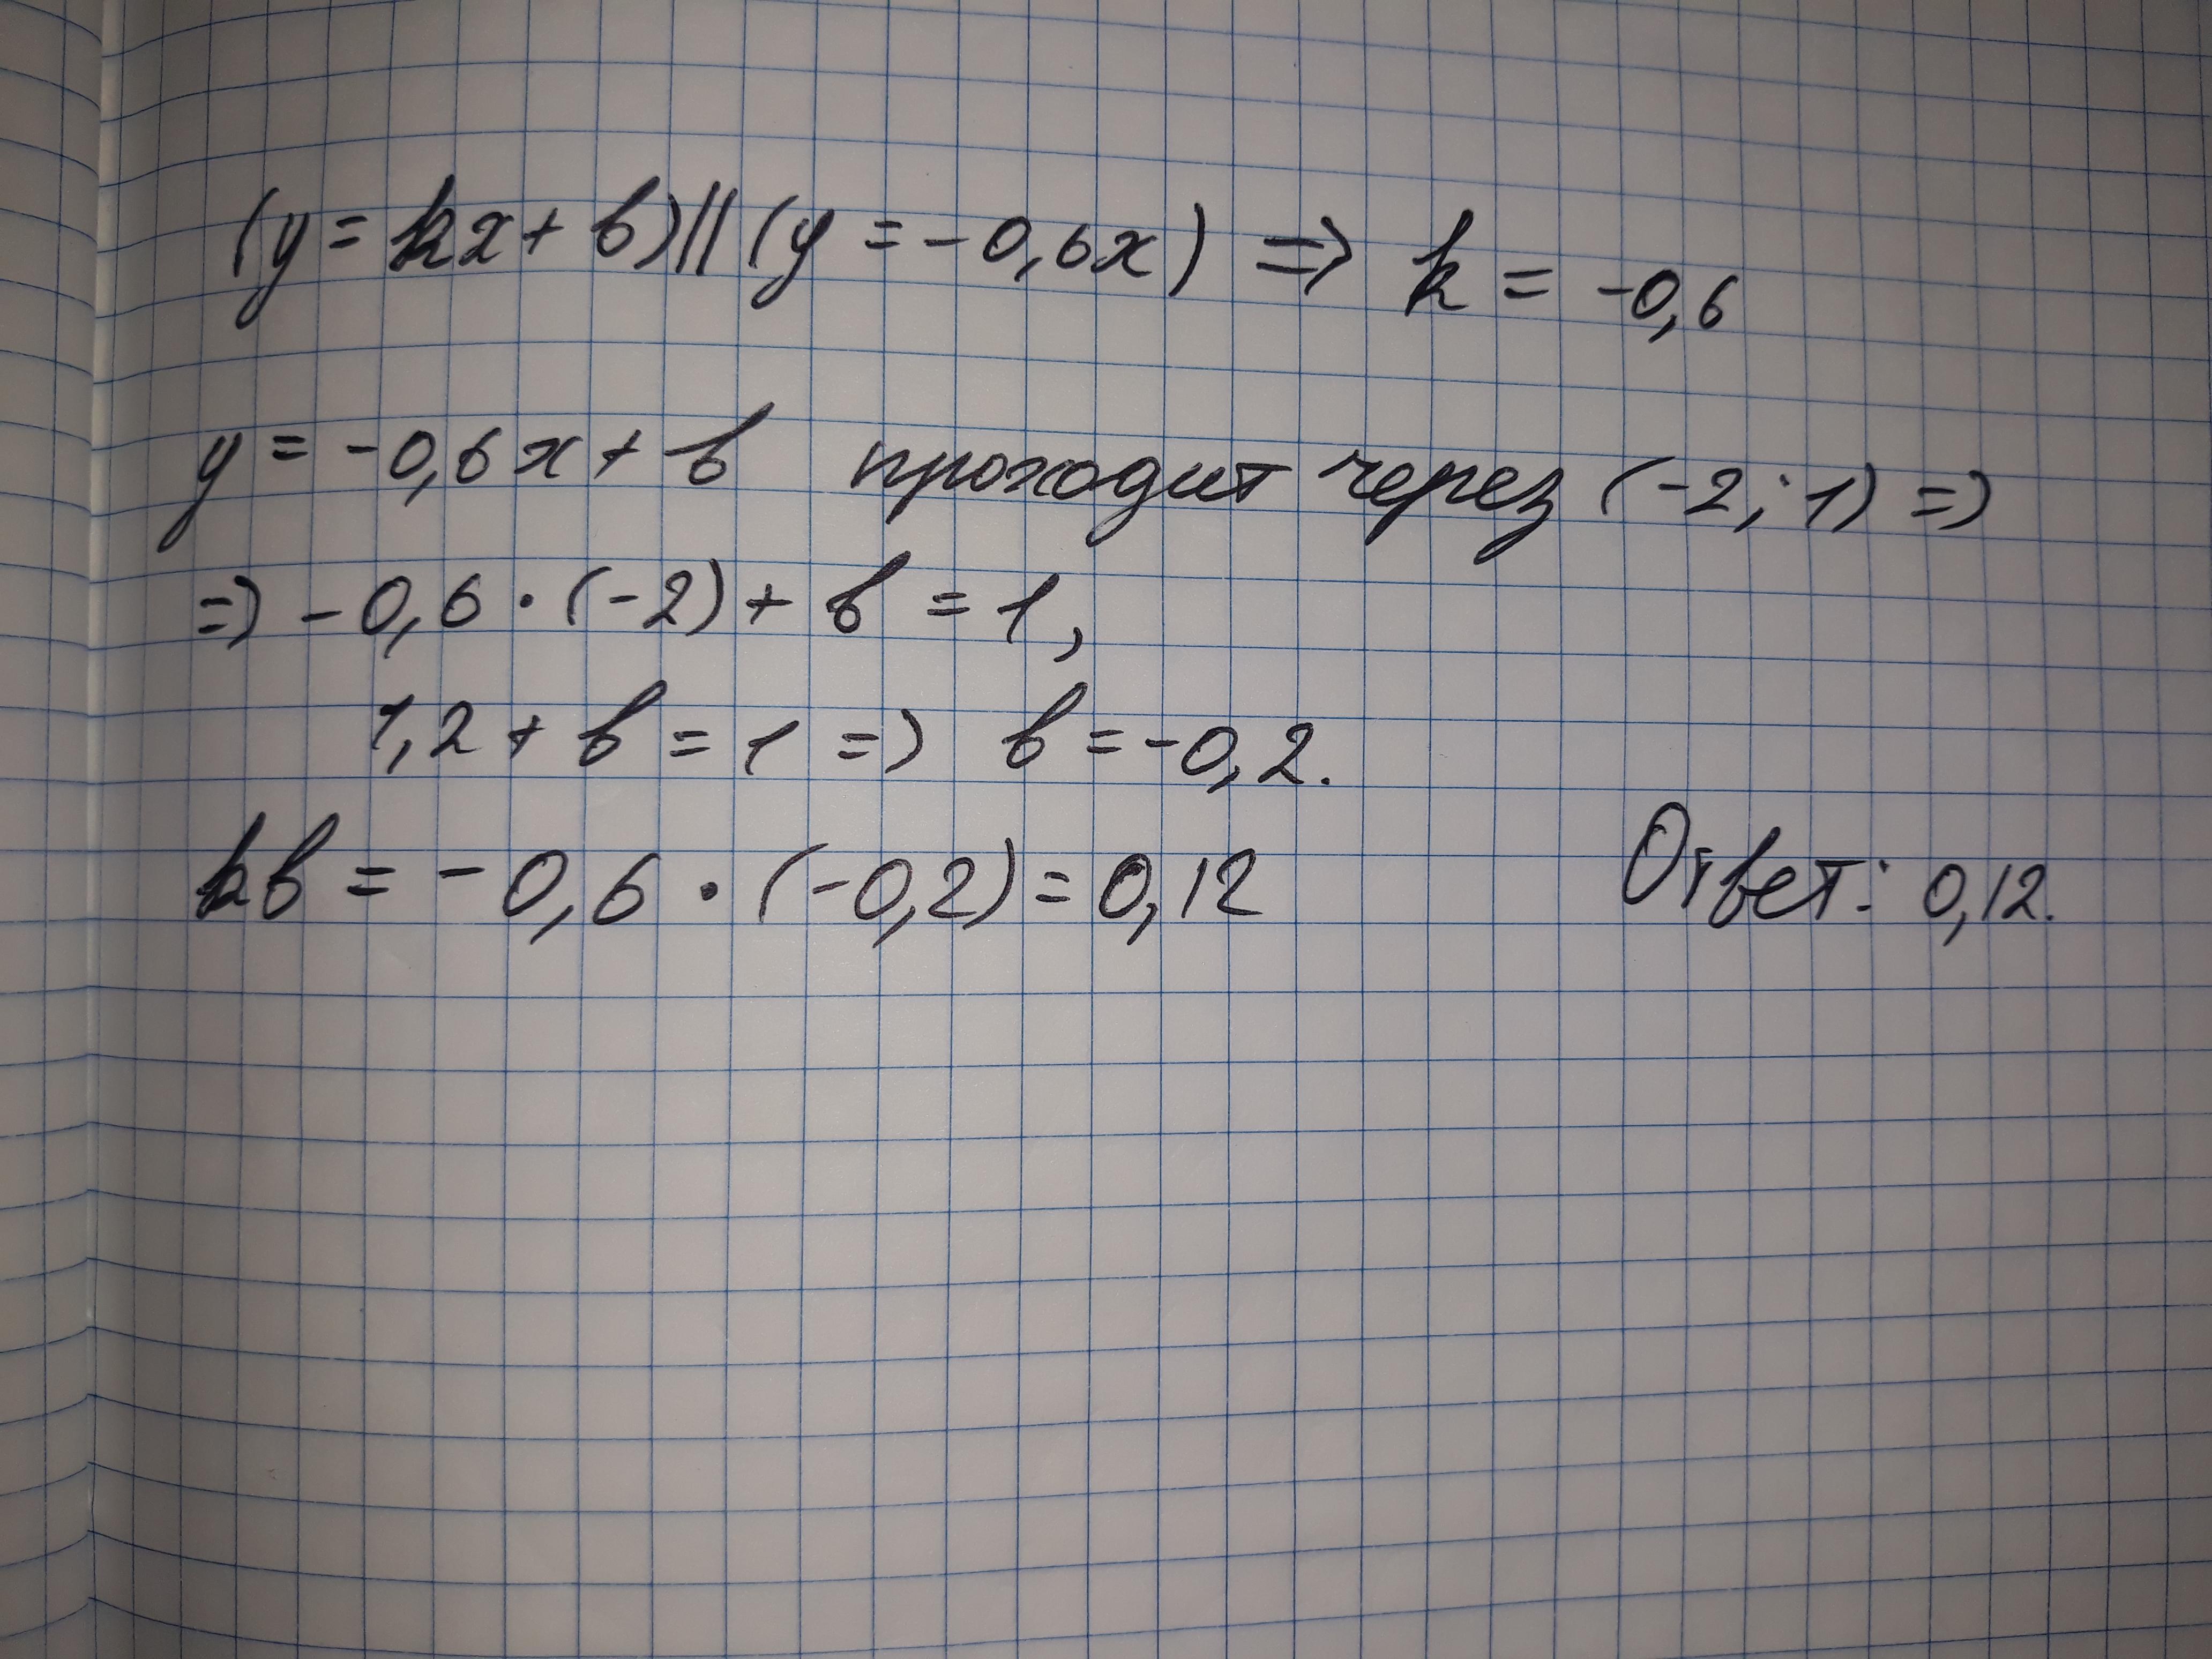 (y = kx + b) || (y = -0,6x) => k = -0,6
y = -0,6x + b проходит через (-2; 1) =>
=> -0,6 · (-2) + b = 1,
1,2 + b = 1 => b = -0,2.
kb = -0,6 · (-0,2) = 0,12 Ответ: 0,12.